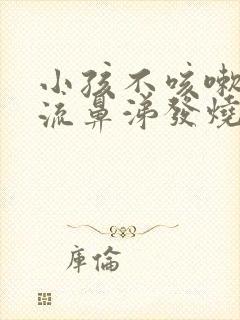 小孩不咳嗽
流鼻涕發燒
庫倫